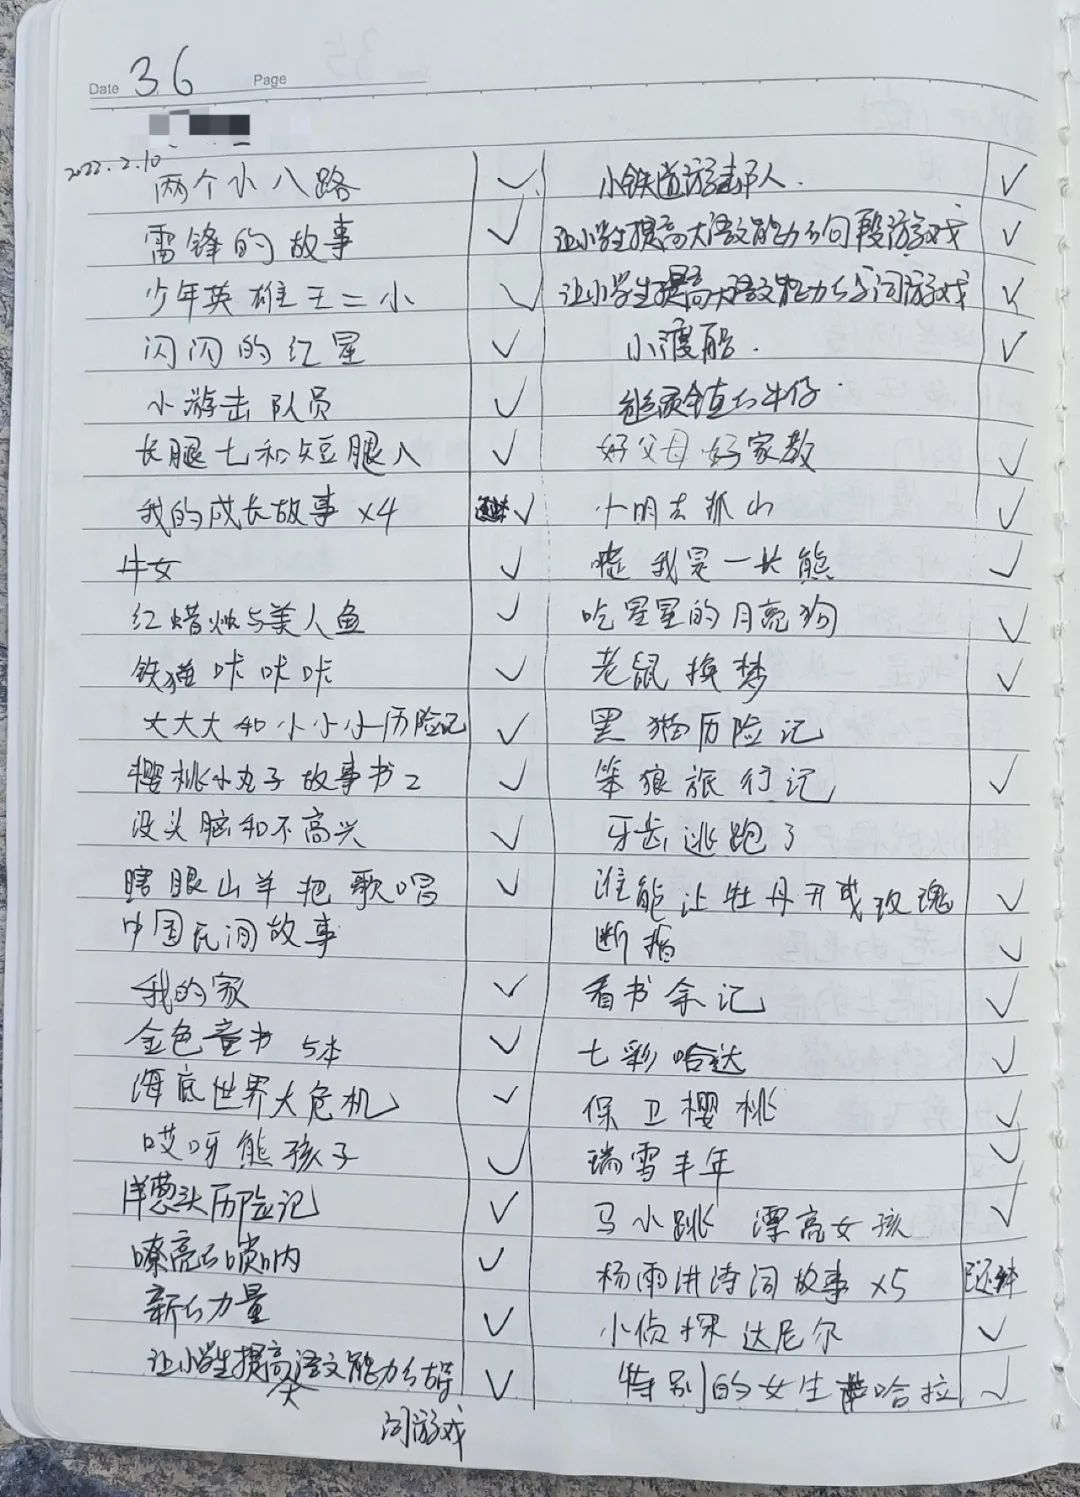 Date 36 Page
2022.2.10
两个小八路 ✓ 小铁道游击队人. ✓
雷锋的故事 ✓ 让小学生提高大语文能力的句段游戏 ✓
少年英雄王二小 ✓ 让小学生提高大语文能力的字词游戏 ✓
闪闪的红星 ✓ 小渡船. ✓
小游击队员 ✓ 牛仔
长腿七和短腿八 ✓ 好父母好家教 ✓
我的成长故事 x4 ✓ 小明去孤山 ✓
牛女 ✓ 嘘我是一长熊 ✓
红蜡烛与美人鱼 ✓ 吃星星的月亮狗 ✓
铁猫咔咔咔 ✓ 老鼠换梦 ✓
大大大和小小小历险记 ✓ 黑猫历险记
樱桃小丸子故事书2 ✓ 笨狼旅行记 ✓
没头脑和不高兴 ✓ 牙齿逃跑了
瞎眼山羊把歌唱 ✓ 谁能让牡丹开成玫瑰 ✓
中国民间故事 断指 ✓
我的家 ✓ 看书余记 ✓
金色童书 5本 ✓ 七彩哈达 ✓
海底世界大危机 ✓ 保卫樱桃 ✓
哎呀熊孩子 ✓ 瑞雪丰年 ✓
洋葱头历险记 ✓ 马小跳 漂亮女孩 ✓
嘹亮的唢呐 ✓ 杨雨讲诗词故事 x5
新的力量 ✓ 小侦探达尼尔 ✓
让小学生提高大语文能力的 ✓ 特别的女生萨哈拉 ✓
词游戏